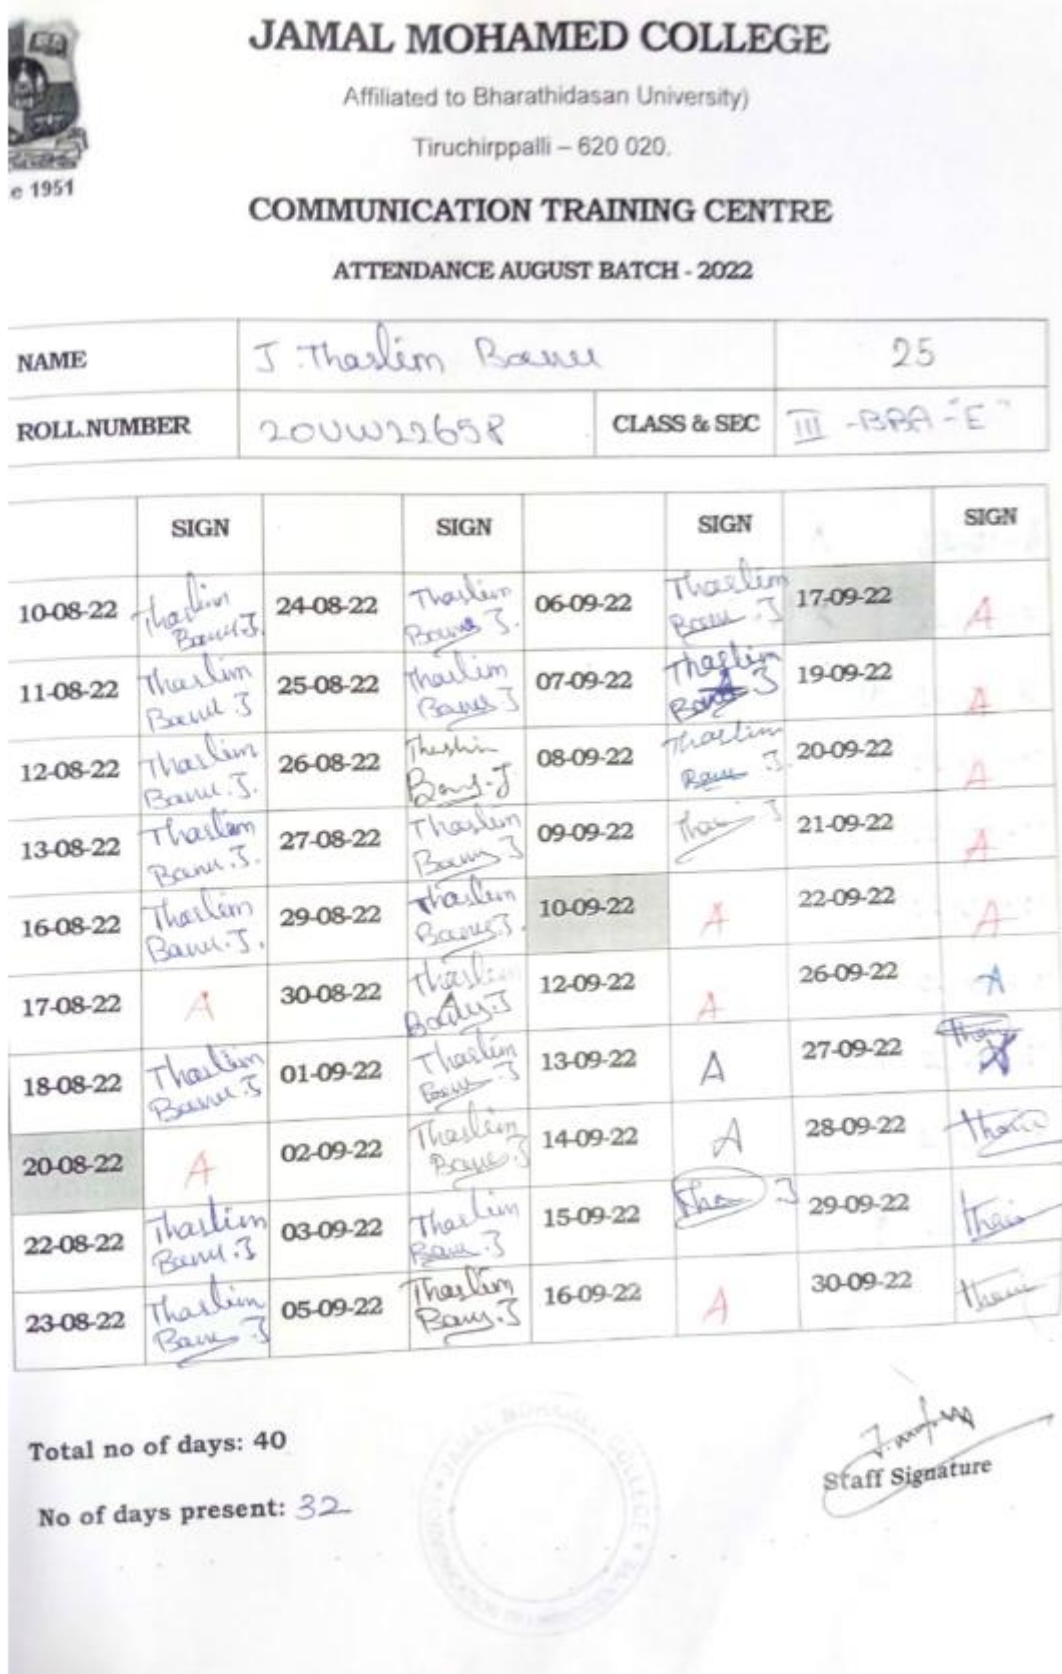 JAMAL MOHAMED COLLEGE
Affiliated to Bharathidasan University)
Tiruchirppalli – 620 020.
e 1951
COMMUNICATION TRAINING CENTRE
ATTENDANCE AUGUST BATCH - 2022
NAME J. Thaslim Banu 25
ROLL.NUMBER 20UW22658 CLASS & SEC III -BBA-"E"
SIGN SIGN SIGN SIGN
10-08-22 Thaslim Banu.J. 24-08-22 Thaslim Banu J. 06-09-22 Thaslim Banu J 17-09-22 A
11-08-22 Thaslim Banu.J 25-08-22 Thaslim Banu J 07-09-22 Thaslim Banu J 19-09-22 A
12-08-22 Thaslim Banu.J. 26-08-22 Thaslim Banu.J 08-09-22 Thaslim Banu J. 20-09-22 A
13-08-22 Thaslim Banu.J. 27-08-22 Thaslim Banu J 09-09-22 J 21-09-22 A
16-08-22 Thaslim Banu.J. 29-08-22 Thaslim Banu J. 10-09-22 A 22-09-22 A
17-08-22 A 30-08-22 Thaslim A Banu.J 12-09-22 A 26-09-22 A
18-08-22 Thaslim Banu.J 01-09-22 Thaslim Banu.J 13-09-22 A 27-09-22
20-08-22 A 02-09-22 Thaslim Banu J 14-09-22 A 28-09-22
22-08-22 Thaslim Banu.J 03-09-22 Thaslim Banu.J 15-09-22 J 29-09-22
23-08-22 Thaslim Banu J 05-09-22 Thaslim Banu.J 16-09-22 A 30-09-22
Total no of days: 40
Staff Signature
No of days present: 32